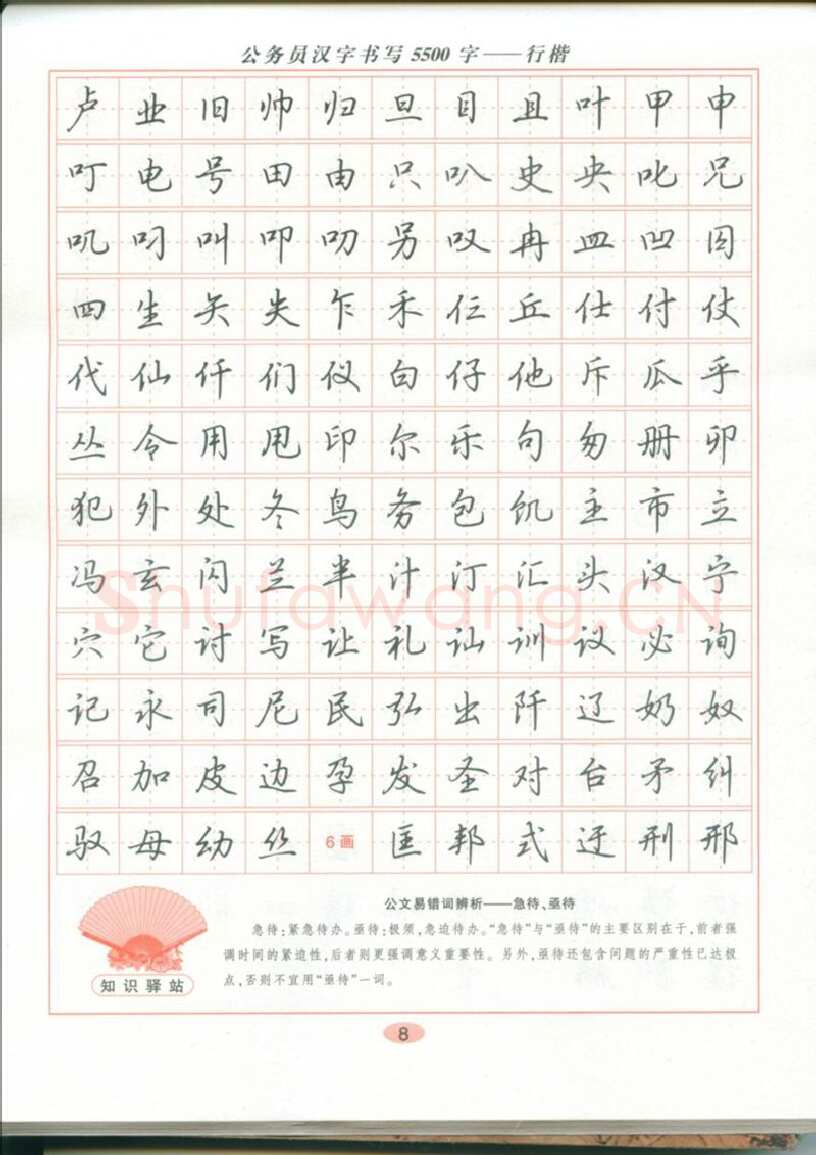 公务员汉字书写 5500 字——行楷
卢 业 旧 帅 归 旦 目 且 叶 甲 申
叮 电 号 田 由 只 叭 史 央 叱 兄
叽 叼 叫 叩 叨 另 叹 冉 皿 凹 囚
四 生 矢 失 乍 禾 仨 丘 仕 付 仗
代 仙 仟 们 仪 白 仔 他 斥 瓜 乎
丛 令 用 甩 印 尔 乐 句 匆 册 卯
犯 外 处 冬 鸟 务 包 饥 主 市 立
冯 玄 闪 兰 半 汁 汀 汇 头 汉 宁
穴 它 讨 写 让 礼 讪 训 议 必 询
记 永 司 尼 民 弘 出 阡 辽 奶 奴
召 加 皮 边 孕 发 圣 对 台 矛 纠
驭 母 幼 丝 6画 匡 邦 式 迂 刑 邢
Shufawang.CN
公文易错词辨析——急待、亟待
急待:紧急待办。亟待:极须,急迫待办。“急待”与“亟待”的主要区别在于,前者强
调时间的紧迫性,后者则更强调意义重要性。另外,亟待还包含问题的严重性已达极
点,否则不宜用“亟待”一词。
知识驿站
8